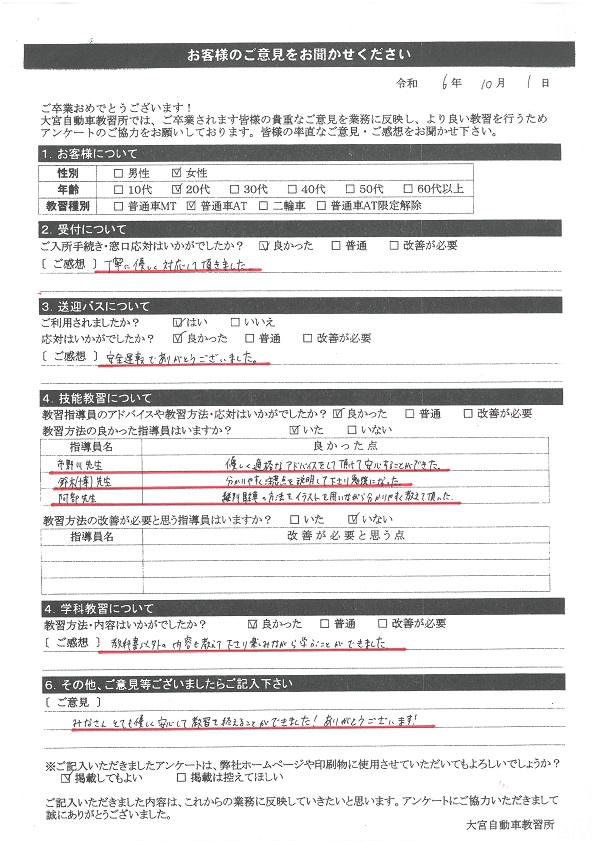 お客様のご意見をお聞かせください
令和 6年 10月 1日
ご卒業おめでとうございます！
大宮自動車教習所では、ご卒業されます皆様の貴重なご意見を業務に反映し、より良い教習を行うため
アンケートのご協力をお願いしております。皆様の率直なご意見・ご感想をお聞かせ下さい。
1. お客様について
性別 □ 男性 ☑ 女性
年齢 □ 10代 ☑ 20代 □ 30代 □ 40代 □ 50代 □ 60代以上
教習種別 □ 普通車MT ☑ 普通車AT □ 二輪車 □ 普通車AT限定解除
2. 受付について
ご入所手続き・窓口応対はいかがでしたか？ ☑ 良かった □ 普通 □ 改善が必要
〔 ご感想 〕 丁寧に優しく対応して頂きました
3. 送迎バスについて
ご利用されましたか？ ☑はい □いいえ
応対はいかがでしたか？ ☑良かった □ 普通 □ 改善が必要
〔 ご感想 〕 安全運転でありがとうございました。
4. 技能教習について
教習指導員のアドバイスや教習方法・応対はいかがでしたか？ ☑ 良かった □ 普通 □ 改善が必要
教習方法の良かった指導員はいますか？ ☑ いた □ いない
指導員名 良かった点
市野川先生 優しく適格なアドバイスをして頂けて安心することができた。
鈴木(博)先生 分かりやすく注意点を説明して下さり勉強になった
阿部先生 縦列駐車の方法をイラストを用いながら分かりやすく教えて頂った.
教習方法の改善が必要と思う指導員はいますか？ □ いた ☑ いない
指導員名 改善が必要と思う点
4. 学科教習について
教習方法・内容はいかがでしたか？ ☑ 良かった □ 普通 □ 改善が必要
〔 ご感想 〕 教科書以外の内容も教えて下さり楽しみながら学ぶことができました
6. その他、ご意見等ございましたらご記入下さい
〔 ご意見 〕
みなさん とても優しく安心して教習を終えることができました! ありがとうございます!
※ご記入いただきましたアンケートは、弊社ホームページや印刷物に使用させていただいてもよろしいでしょうか？
☑ 掲載してもよい □ 掲載は控えてほしい
ご記入いただきました内容は、これからの業務に反映していきたいと思います。アンケートにご協力いただきまして
誠にありがとうございました。
大宮自動車教習所